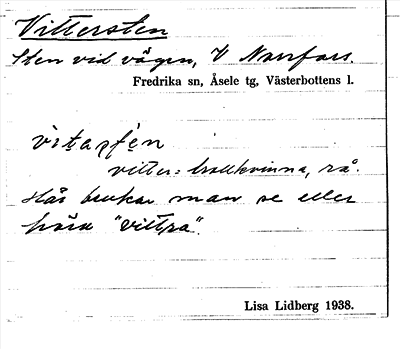 Vittersten
Sten vid vägen, V Norrfors.
Fredrika sn, Åsele tg, Västerbottens l.
vitter: trollkvinna, rå.
Här brukar man se eller
höra "vittra".
Lisa Lidberg 1938.